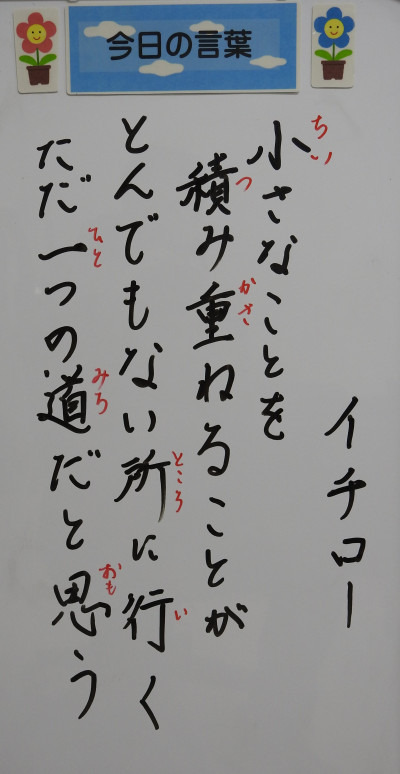 今日の言葉
イチロー
小さなことを
積み重ねることが
とんでもない所に行く
ただ一つの道だと思う
ちい
つ
かさ
ところ
い
ひと
みち
おも